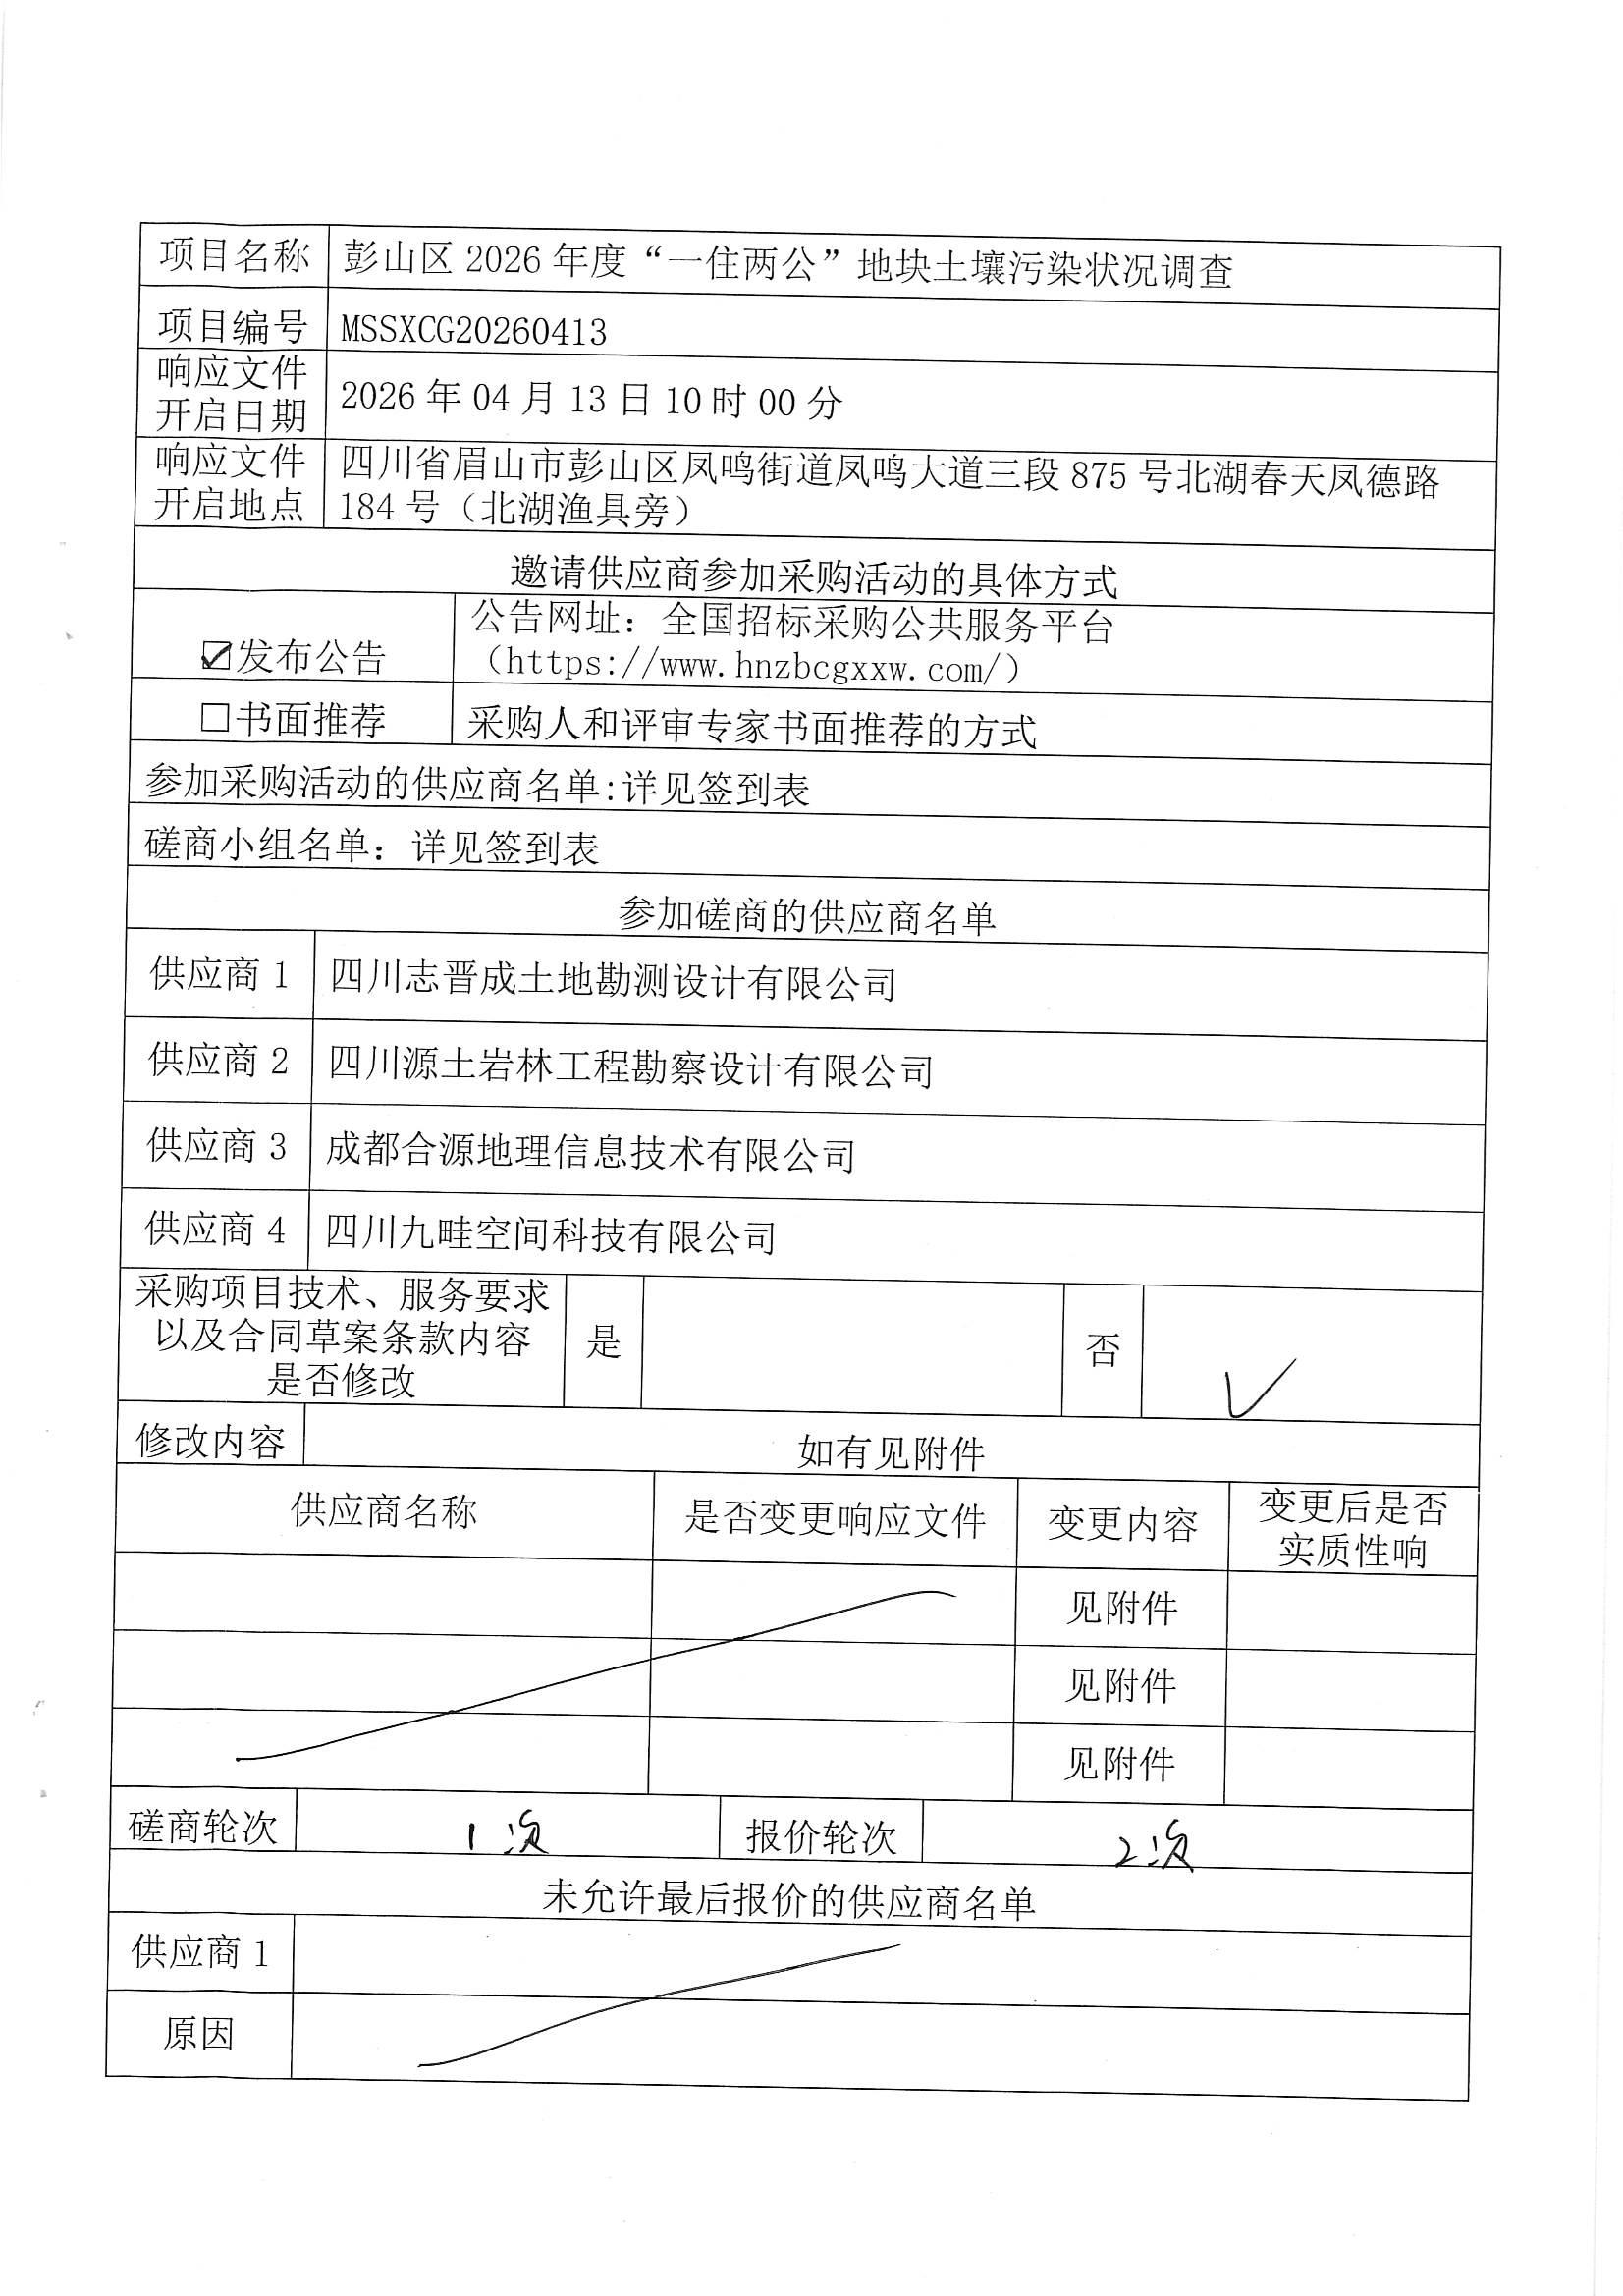 项目名称 彭山区 2026 年度“一住两公”地块土壤污染状况调查
项目编号 MSSXCG20260413
响应文件
开启日期 2026 年 04 月 13 日 10 时 00 分
响应文件 四川省眉山市彭山区凤鸣街道凤鸣大道三段 875 号北湖春天凤德路
开启地点 184 号（北湖渔具旁）
邀请供应商参加采购活动的具体方式
公告网址：全国招标采购公共服务平台
☑发布公告 （https://www.hnzbcgxxw.com/）
□书面推荐 采购人和评审专家书面推荐的方式
参加采购活动的供应商名单:详见签到表
磋商小组名单：详见签到表
参加磋商的供应商名单
供应商 1 四川志晋成土地勘测设计有限公司
供应商 2 四川源土岩林工程勘察设计有限公司
供应商 3 成都合源地理信息技术有限公司
供应商 4 四川九畦空间科技有限公司
采购项目技术、服务要求
以及合同草案条款内容 是 否 ✓
是否修改
修改内容 如有见附件
供应商名称 是否变更响应文件 变更内容 变更后是否
实质性响
见附件
见附件
见附件
磋商轮次 1次 报价轮次 2次
未允许最后报价的供应商名单
供应商 1
原因